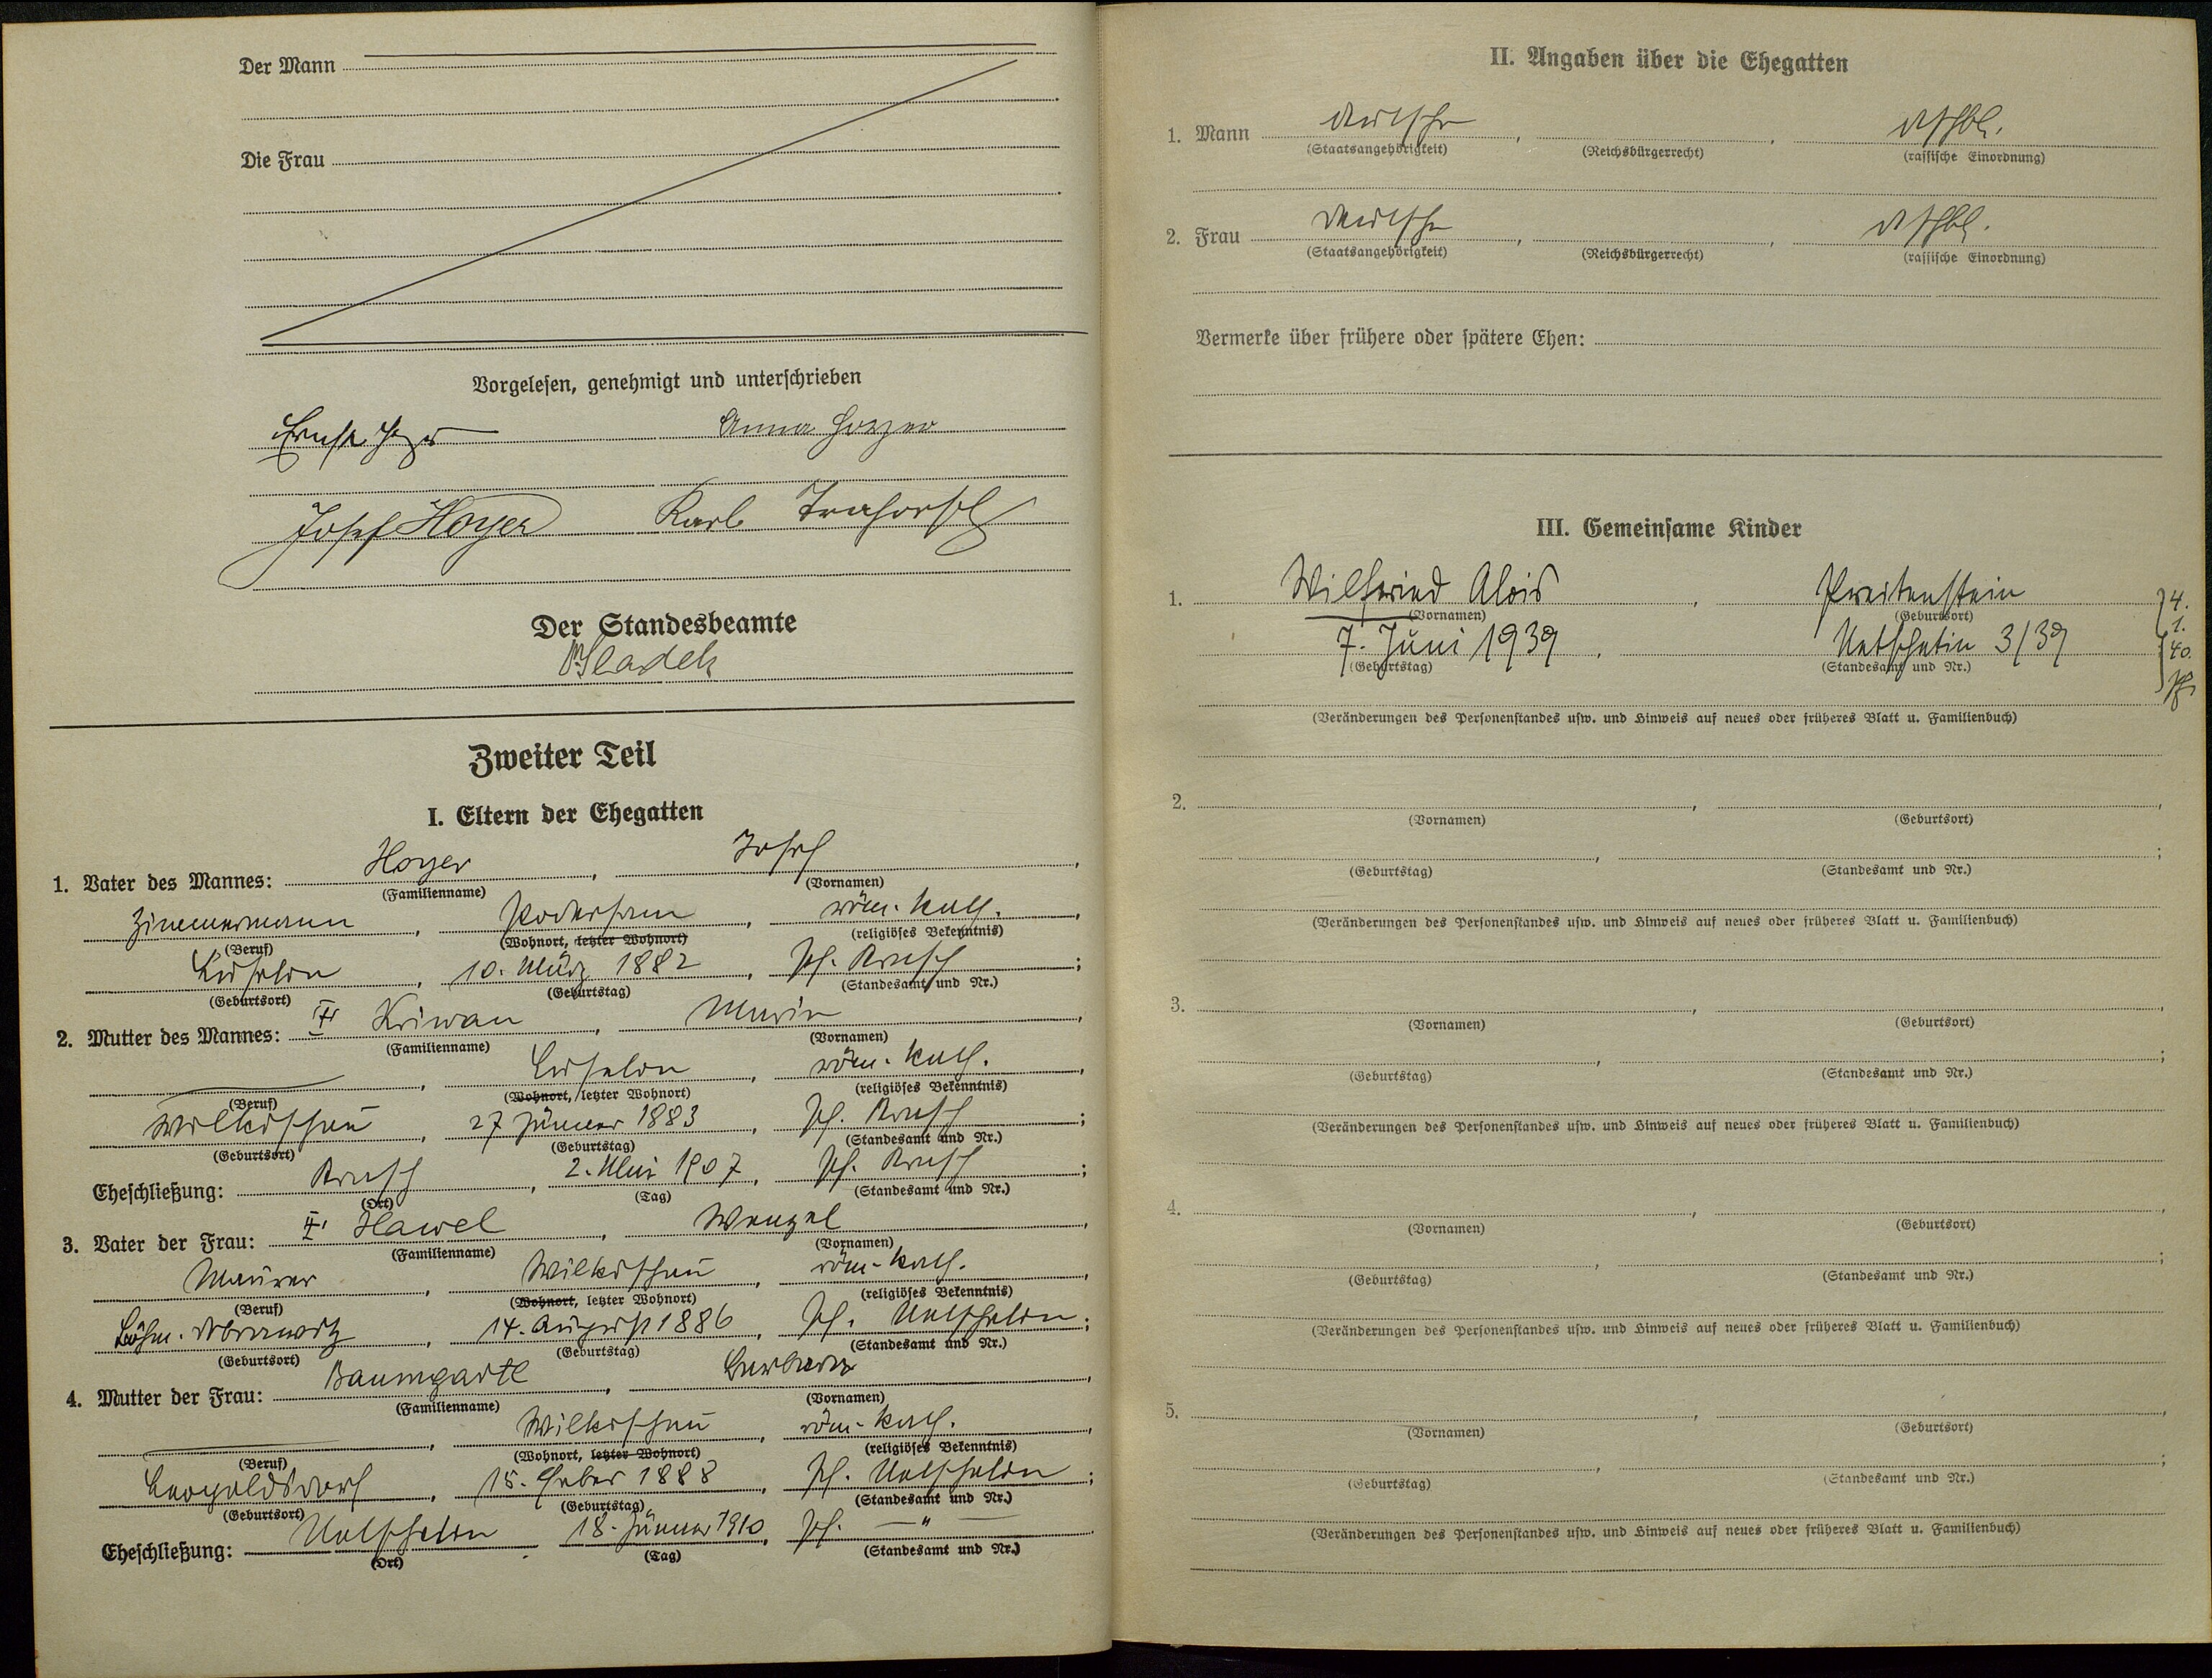 Der Mann
Die Frau
Vorgelesen, genehmigt und unterschrieben
Ernst Hoyer Anna Hoyer
Josef Hoyer Karl
Der Standesbeamte
Sladek
Zweiter Teil
I. Eltern der Ehegatten
1. Vater des Mannes: Hoyer, Josef,
(Familienname) (Vornamen)
Zimmermann, Podersam, röm. kath.,
(Beruf) (Wohnort, letzter Wohnort) (religiöses Bekenntnis)
10. März 1882, Pf. ;
(Geburtsort) (Geburtstag) (Standesamt und Nr.)
2. Mutter des Mannes: Kriwan, Maria,
(Familienname) (Vornamen)
röm. kath.,
(Beruf) (Wohnort, letzter Wohnort) (religiöses Bekenntnis)
Wilkischen, 27 Jänner 1883, Pf. ;
(Geburtsort) (Geburtstag) (Standesamt und Nr.)
Eheschließung: , 2. Mai 1907, Pf. ;
(Ort) (Tag) (Standesamt und Nr.)
3. Vater der Frau: Hawel, Wenzel,
(Familienname) (Vornamen)
Maurer, Wilkischen, röm. kath.,
(Beruf) (Wohnort, letzter Wohnort) (religiöses Bekenntnis)
Böhm. , 14. August 1886, Pf. Netschetin;
(Geburtsort) (Geburtstag) (Standesamt und Nr.)
4. Mutter der Frau: Baumgartl, Barbara,
(Familienname) (Vornamen)
Wilkischen, röm. kath.,
(Beruf) (Wohnort, letzter Wohnort) (religiöses Bekenntnis)
Leopoldsdorf, 15. Feber 1888, Pf. Netschetin;
(Geburtsort) (Geburtstag) (Standesamt und Nr.)
Eheschließung: Netschetin 18. Jänner 1910, Pf. — " —
(Ort) (Tag) (Standesamt und Nr.)
II. Angaben über die Ehegatten
1. Mann deutsche, , dtschbl.
(Staatsangehörigkeit) (Reichsbürgerrecht) (rassische Einordnung)
2. Frau deutsche, , dtschbl.
(Staatsangehörigkeit) (Reichsbürgerrecht) (rassische Einordnung)
Vermerke über frühere oder spätere Ehen:
III. Gemeinsame Kinder
1. Wilfried Alois, Preitenstein
(Vornamen) (Geburtsort)
7. Juni 1939, Netschetin 3/39
(Geburtstag) (Standesamt und Nr.)
4.
1.
40.
(Veränderungen des Personenstandes usw. und Hinweis auf neues oder früheres Blatt u. Familienbuch)
2.
(Vornamen) (Geburtsort)
(Geburtstag) (Standesamt und Nr.)
(Veränderungen des Personenstandes usw. und Hinweis auf neues oder früheres Blatt u. Familienbuch)
3.
(Vornamen) (Geburtsort)
(Geburtstag) (Standesamt und Nr.)
(Veränderungen des Personenstandes usw. und Hinweis auf neues oder früheres Blatt u. Familienbuch)
4.
(Vornamen) (Geburtsort)
(Geburtstag) (Standesamt und Nr.)
(Veränderungen des Personenstandes usw. und Hinweis auf neues oder früheres Blatt u. Familienbuch)
5.
(Vornamen) (Geburtsort)
(Geburtstag) (Standesamt und Nr.)
(Veränderungen des Personenstandes usw. und Hinweis auf neues oder früheres Blatt u. Familienbuch)